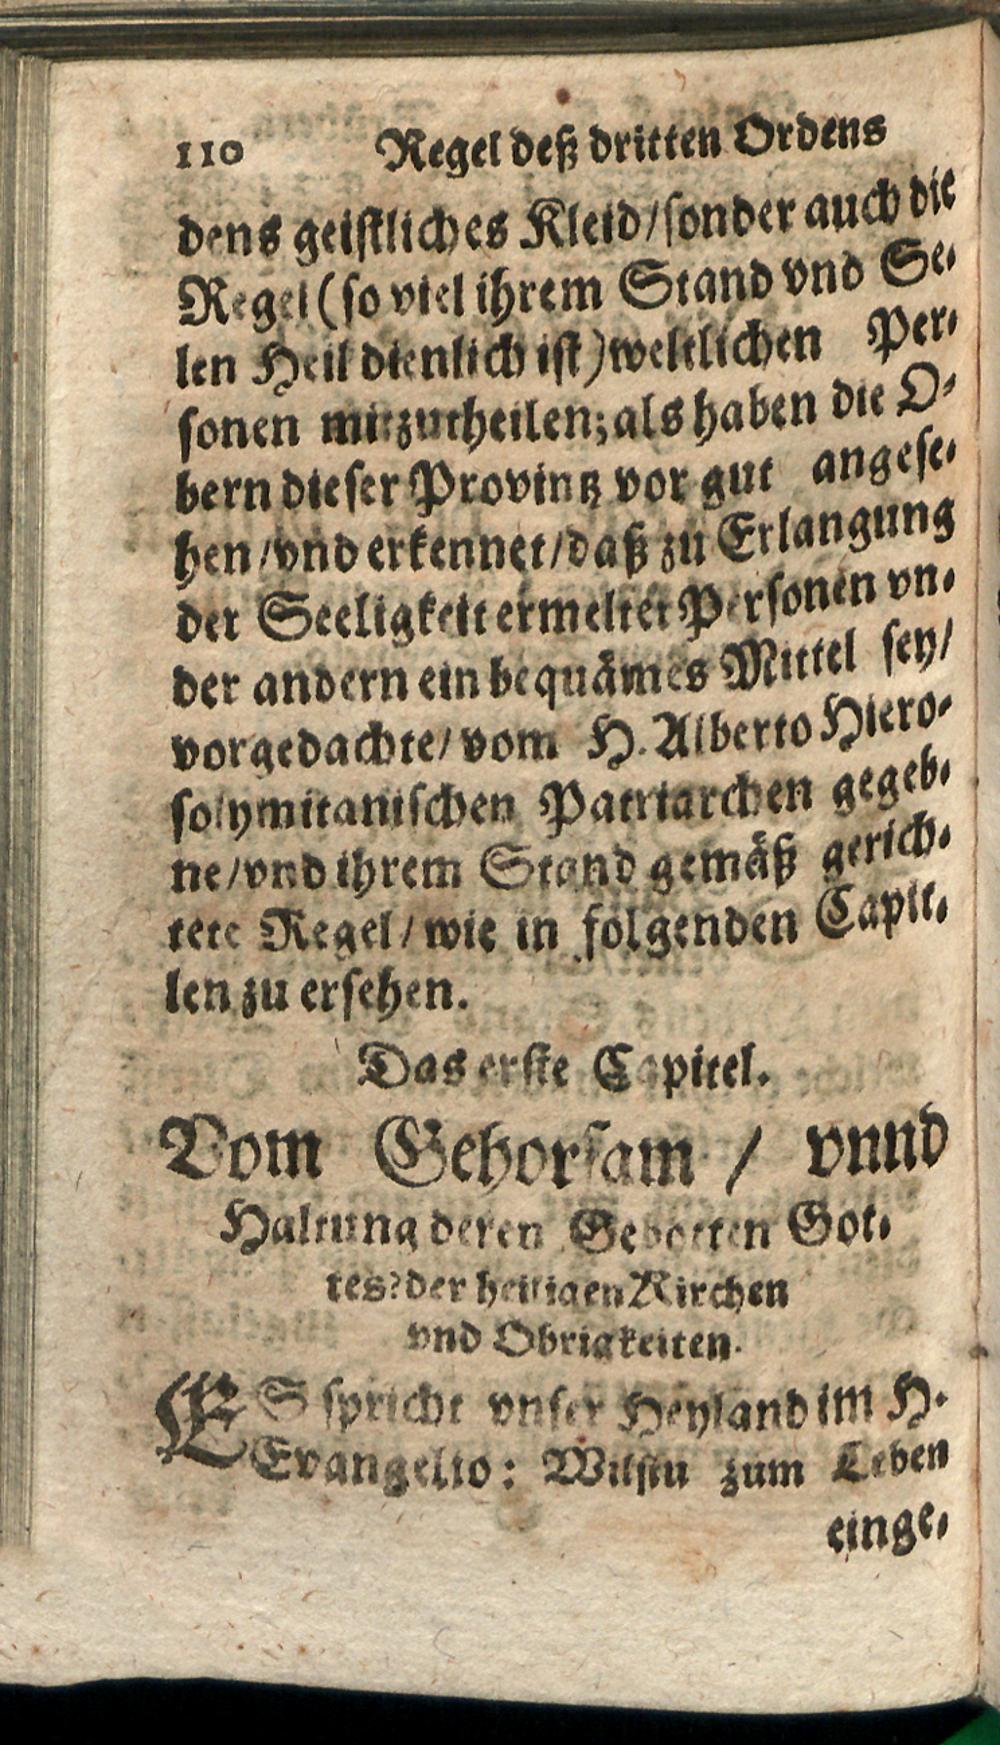 110 Regel deß dritten Ordens
dens geistliches Kleid/sonder auch die
Regel (so viel ihrem Stand vnd See-
len Heil dienlich ist) weltlichen Per-
sonen mitzutheilen; als haben die O-
bern dieser Provintz vor gut angese-
hen/vnd erkennet/daß zu Erlangung
der Seeligkeit ermelter Personen vn-
der andern ein bequämes Mittel sey/
vorgedachte/vom H. Alberto Hiero-
solymitanischen Patriarchen gegeb-
ne/vnd ihrem Stand gemäß gerich-
tete Regel/wie in folgenden Capit-
len zu ersehen.
Das erste Capitel.
Vom Gehorsam / vnnd
Haltung deren Gebotten Got-
tes? der heiligen Kirchen
vnd Obrigkeiten.
ES spricht vnser Heyland im H.
Evangelio: Wilstu zum Leben
einge-